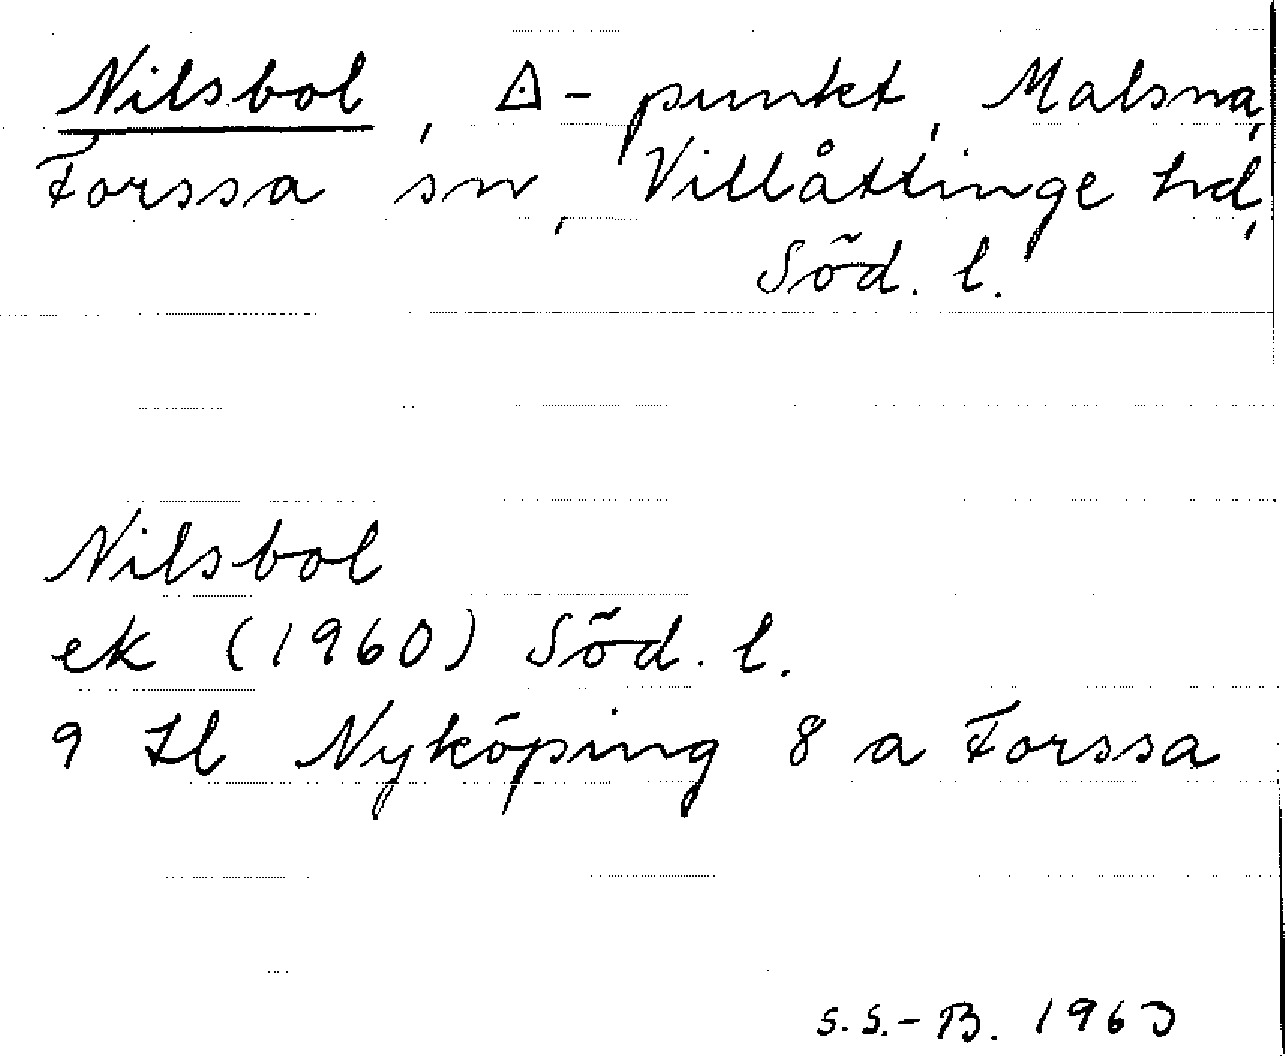 Nilsbol, △-punkt, Malsna,
Forssa sn, Villåttinge hd,
Söd. l.
Nilsbol
ek (1960) Söd. l.
9 H Nyköping 8 a Forssa
S.S.-B. 1963